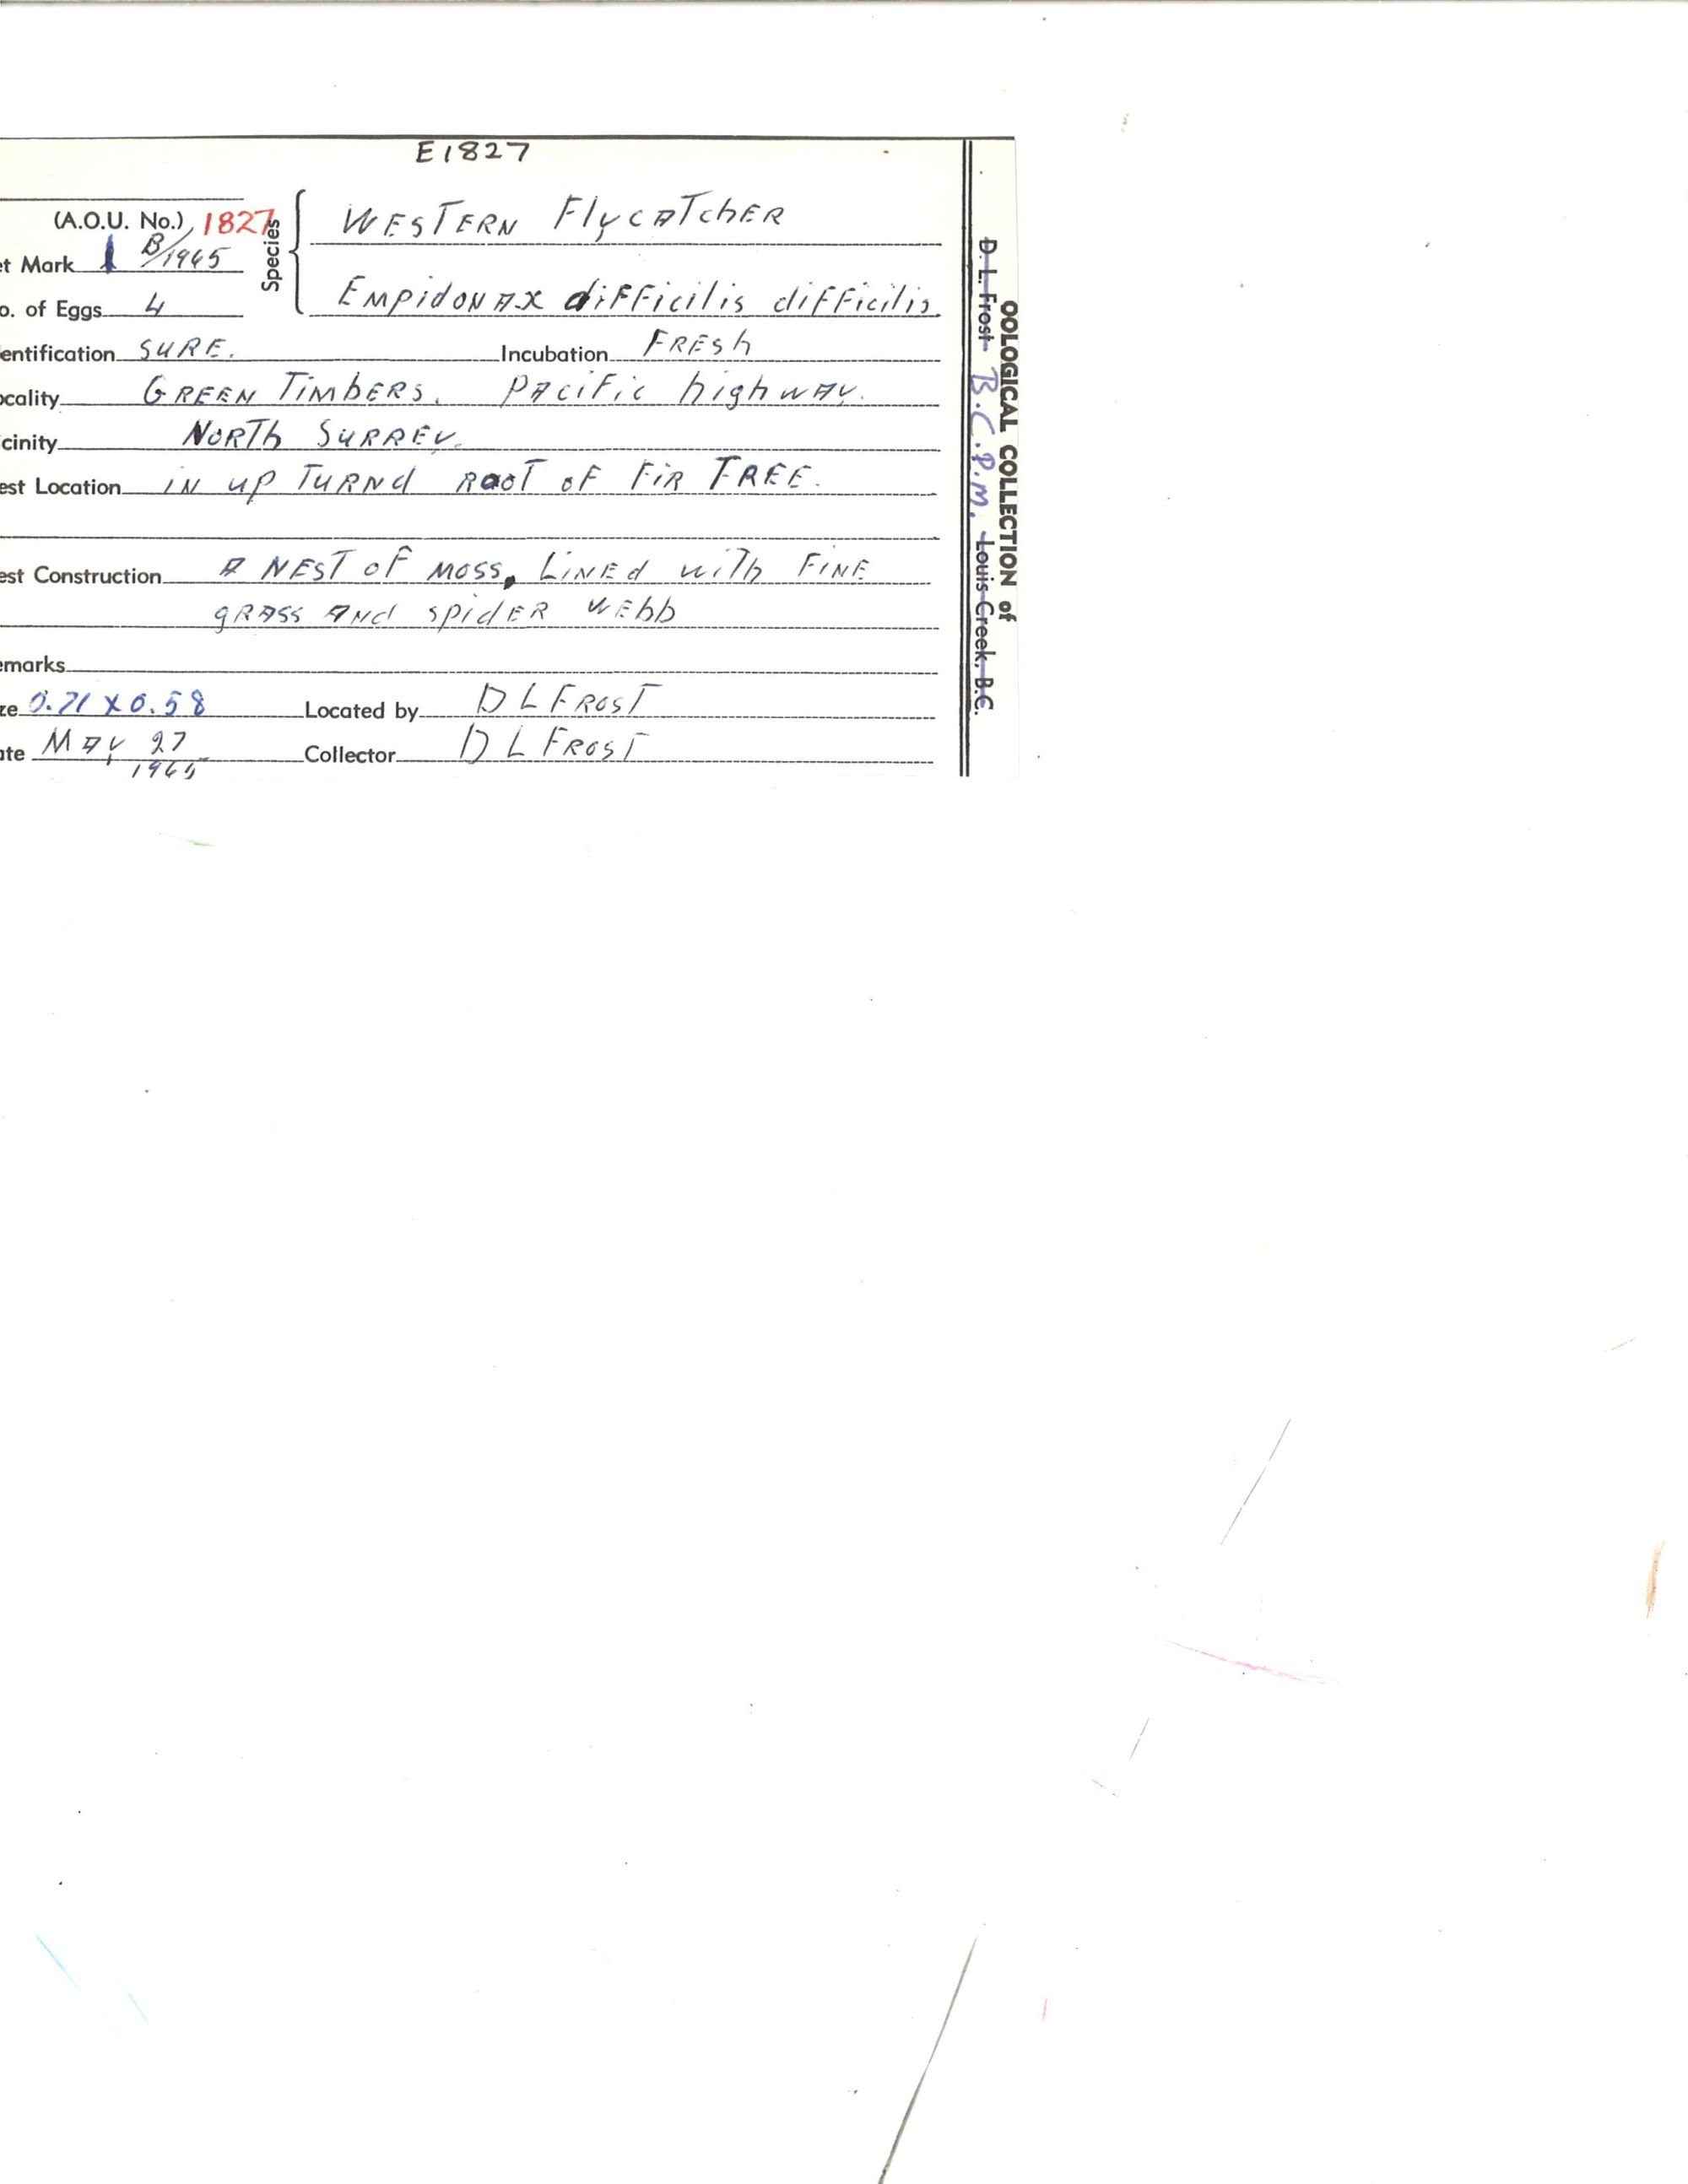 E1827
(A.O.U. No.) 1827
Species
WESTERN FlycATchER
et Mark 1 B/1965
EMpidoNAX difficilis difficilis.
o. of Eggs 4
entification SURE. Incubation FRESh
ocality GREEN TimbERS. pAcific highwAy.
cinity NORTh SURREy.
est Location iN up TURNd RooT oF FiR TREE.
est Construction A NEST oF MOSS, LiNEd wiTh FiNE
gRASS ANd spidER WEbb
emarks
ze 0.71 X 0.58 Located by D L FROST
ate MAy 27 1965 Collector D L FROST
OOLOGICAL COLLECTION of
D. L. Frost B.C.P.M. Louis Creek, B.C.